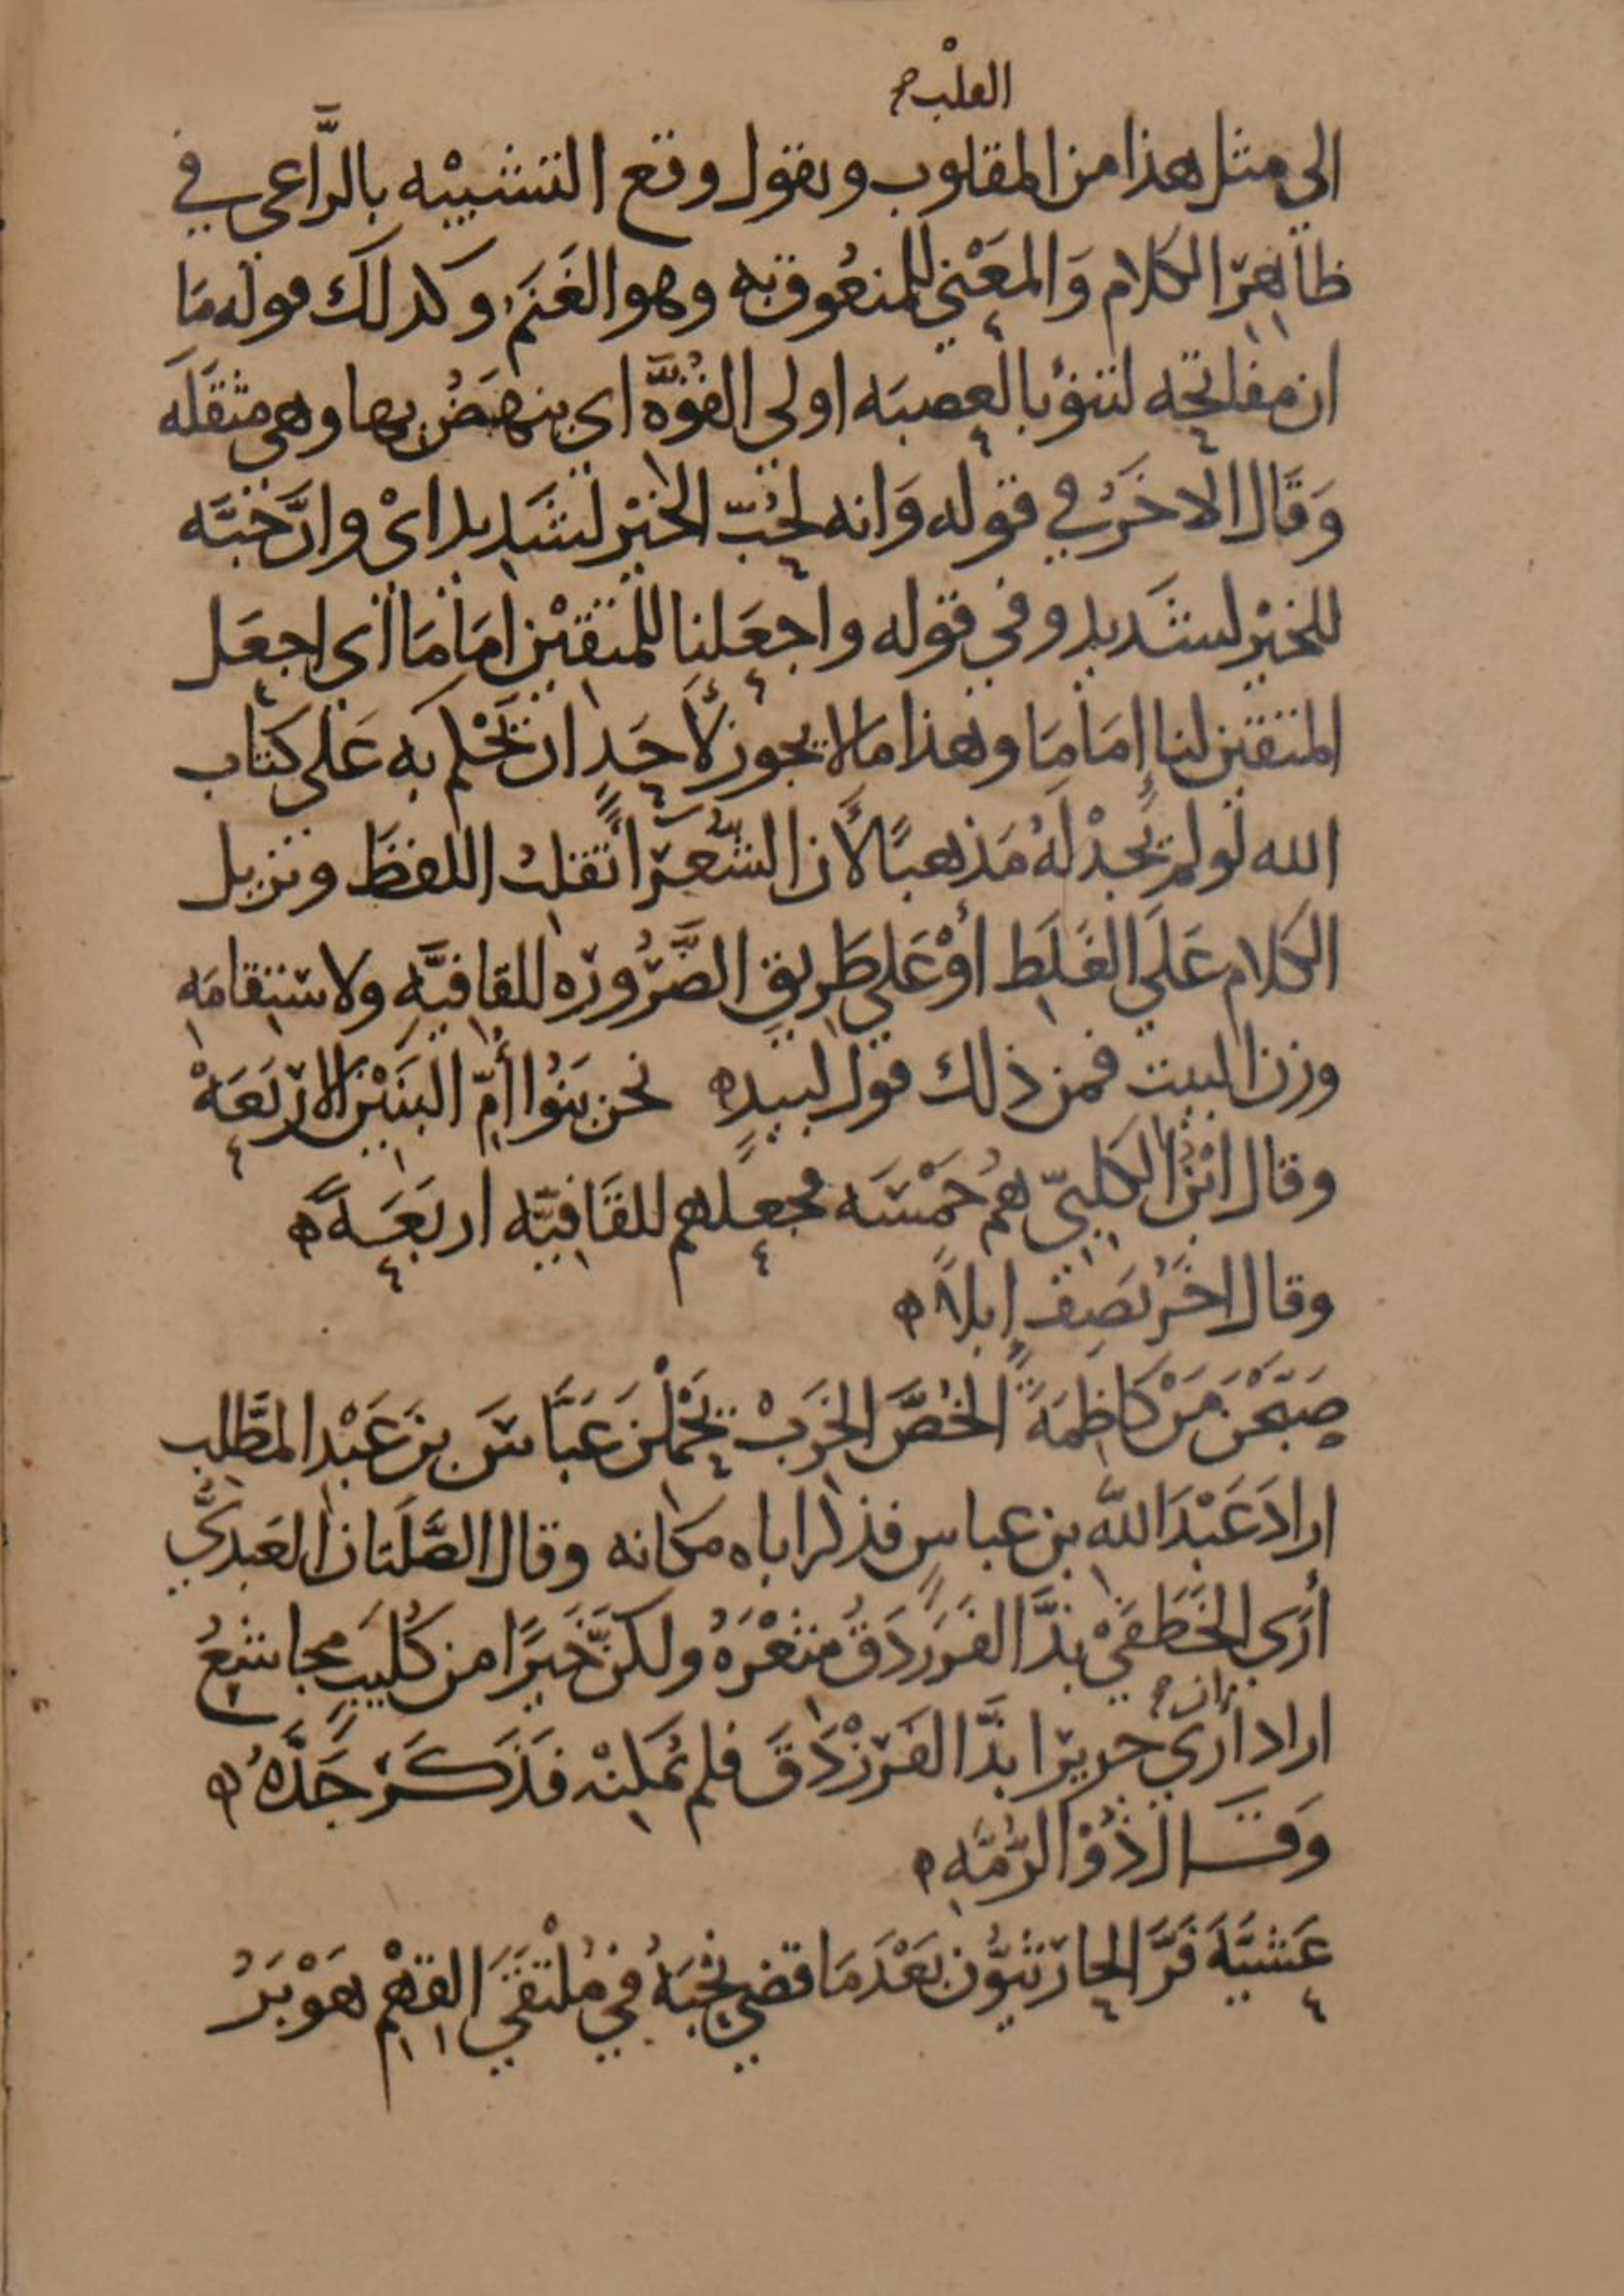 القلب صح
الى مثل هذا من المقلوب ويقول وقع التشبيْه بالرَّاعي في
ظاهِر الكلام وَالمعْني للمنعُوق به وهو الغَنَم وكذلك قوله مَا
ان مفاتحه لتنؤ بالعصبَه اولي القُوَّه اي ينهَضُ بها وهي مثقلَه
وَقال الاخَرُ في قوله وَانه لحُبّ الخيْر لشَديد اىْ وانَّ حُبَّه
للخيْر لشَديد وفي قوله واجعَلنا للمتقيْن امَامَا أي اجعَل
المتقين لنا إمَامَا وهذا ما لا يجوز لأَحَدٍ ان يَحْكم به عَلى كتاب
الله لَو لم يَجدْ لهُ مَذهبًا لأَن الشُّعَرَا تقلبُ اللفظَ وتزيل
الكلام عَلَى الغَلَط أوْ عَلى طَريق الضَّرُوره للقافيَّهِ ولاستقامَهِ
وزن البيت فمن ذلك قول لبيدٍ ه نحن بَنُوا أمّ البَنيْن الارْبَعَهْ
وقال ابْن الكلبيّ همُ خمْسَه فجعلهم للقَافيّه اربَعَهً ه
وقال اخَرُ يَصِف إبلاً ه
صَبَّحْنَ مَنْ كاظِمَةَ الخُصَّ الخَرَبْ يَحْملْنَ عَبَّاسَ بنَ عَبْد المطَّلِب
ارادَ عَبْدَ اللّه بن عباسٍ فذكر اباه مكانه وقال الصَّلَتان العَبديُّ
أرَي الخَطَفَيْ بذَّ الفَرَزدَقُ شعْرَهُ ولكنّ خَيرًا من كُلَيبٍ مجاشعُ
اراد أرَي جريرًا بذَّ الفَرَزْدَقَ فلم يُمكِنْه فَذَكَرَ جَدَّهُ ه
ان صح
وَقَال ذُوْ الرُّمَّهِ ه
عَشيَّةَ فَرَّ الحارثيُّون بَعْدَ مَا قضي نحْبَهُ في مُلْتقَيَ القَوْمِ هَوْبَرُ